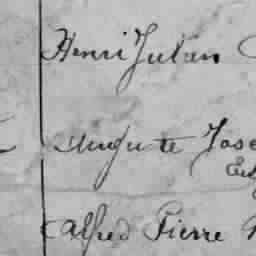 Henri Julien
Auguste Jose
Alfred Pierre